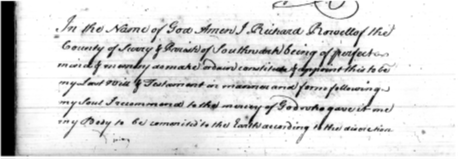 In the Name of God Amen I Richard Rowell of the
County of Surry & Parish of Southwark being of perfect
mind & memory do make ordain constitute & appoint this to be
my Last Will & Testament in manner and form following
my Soul I recommend to the mercy of God who gave it me
my Body to be committed to the Earth according to the discretion